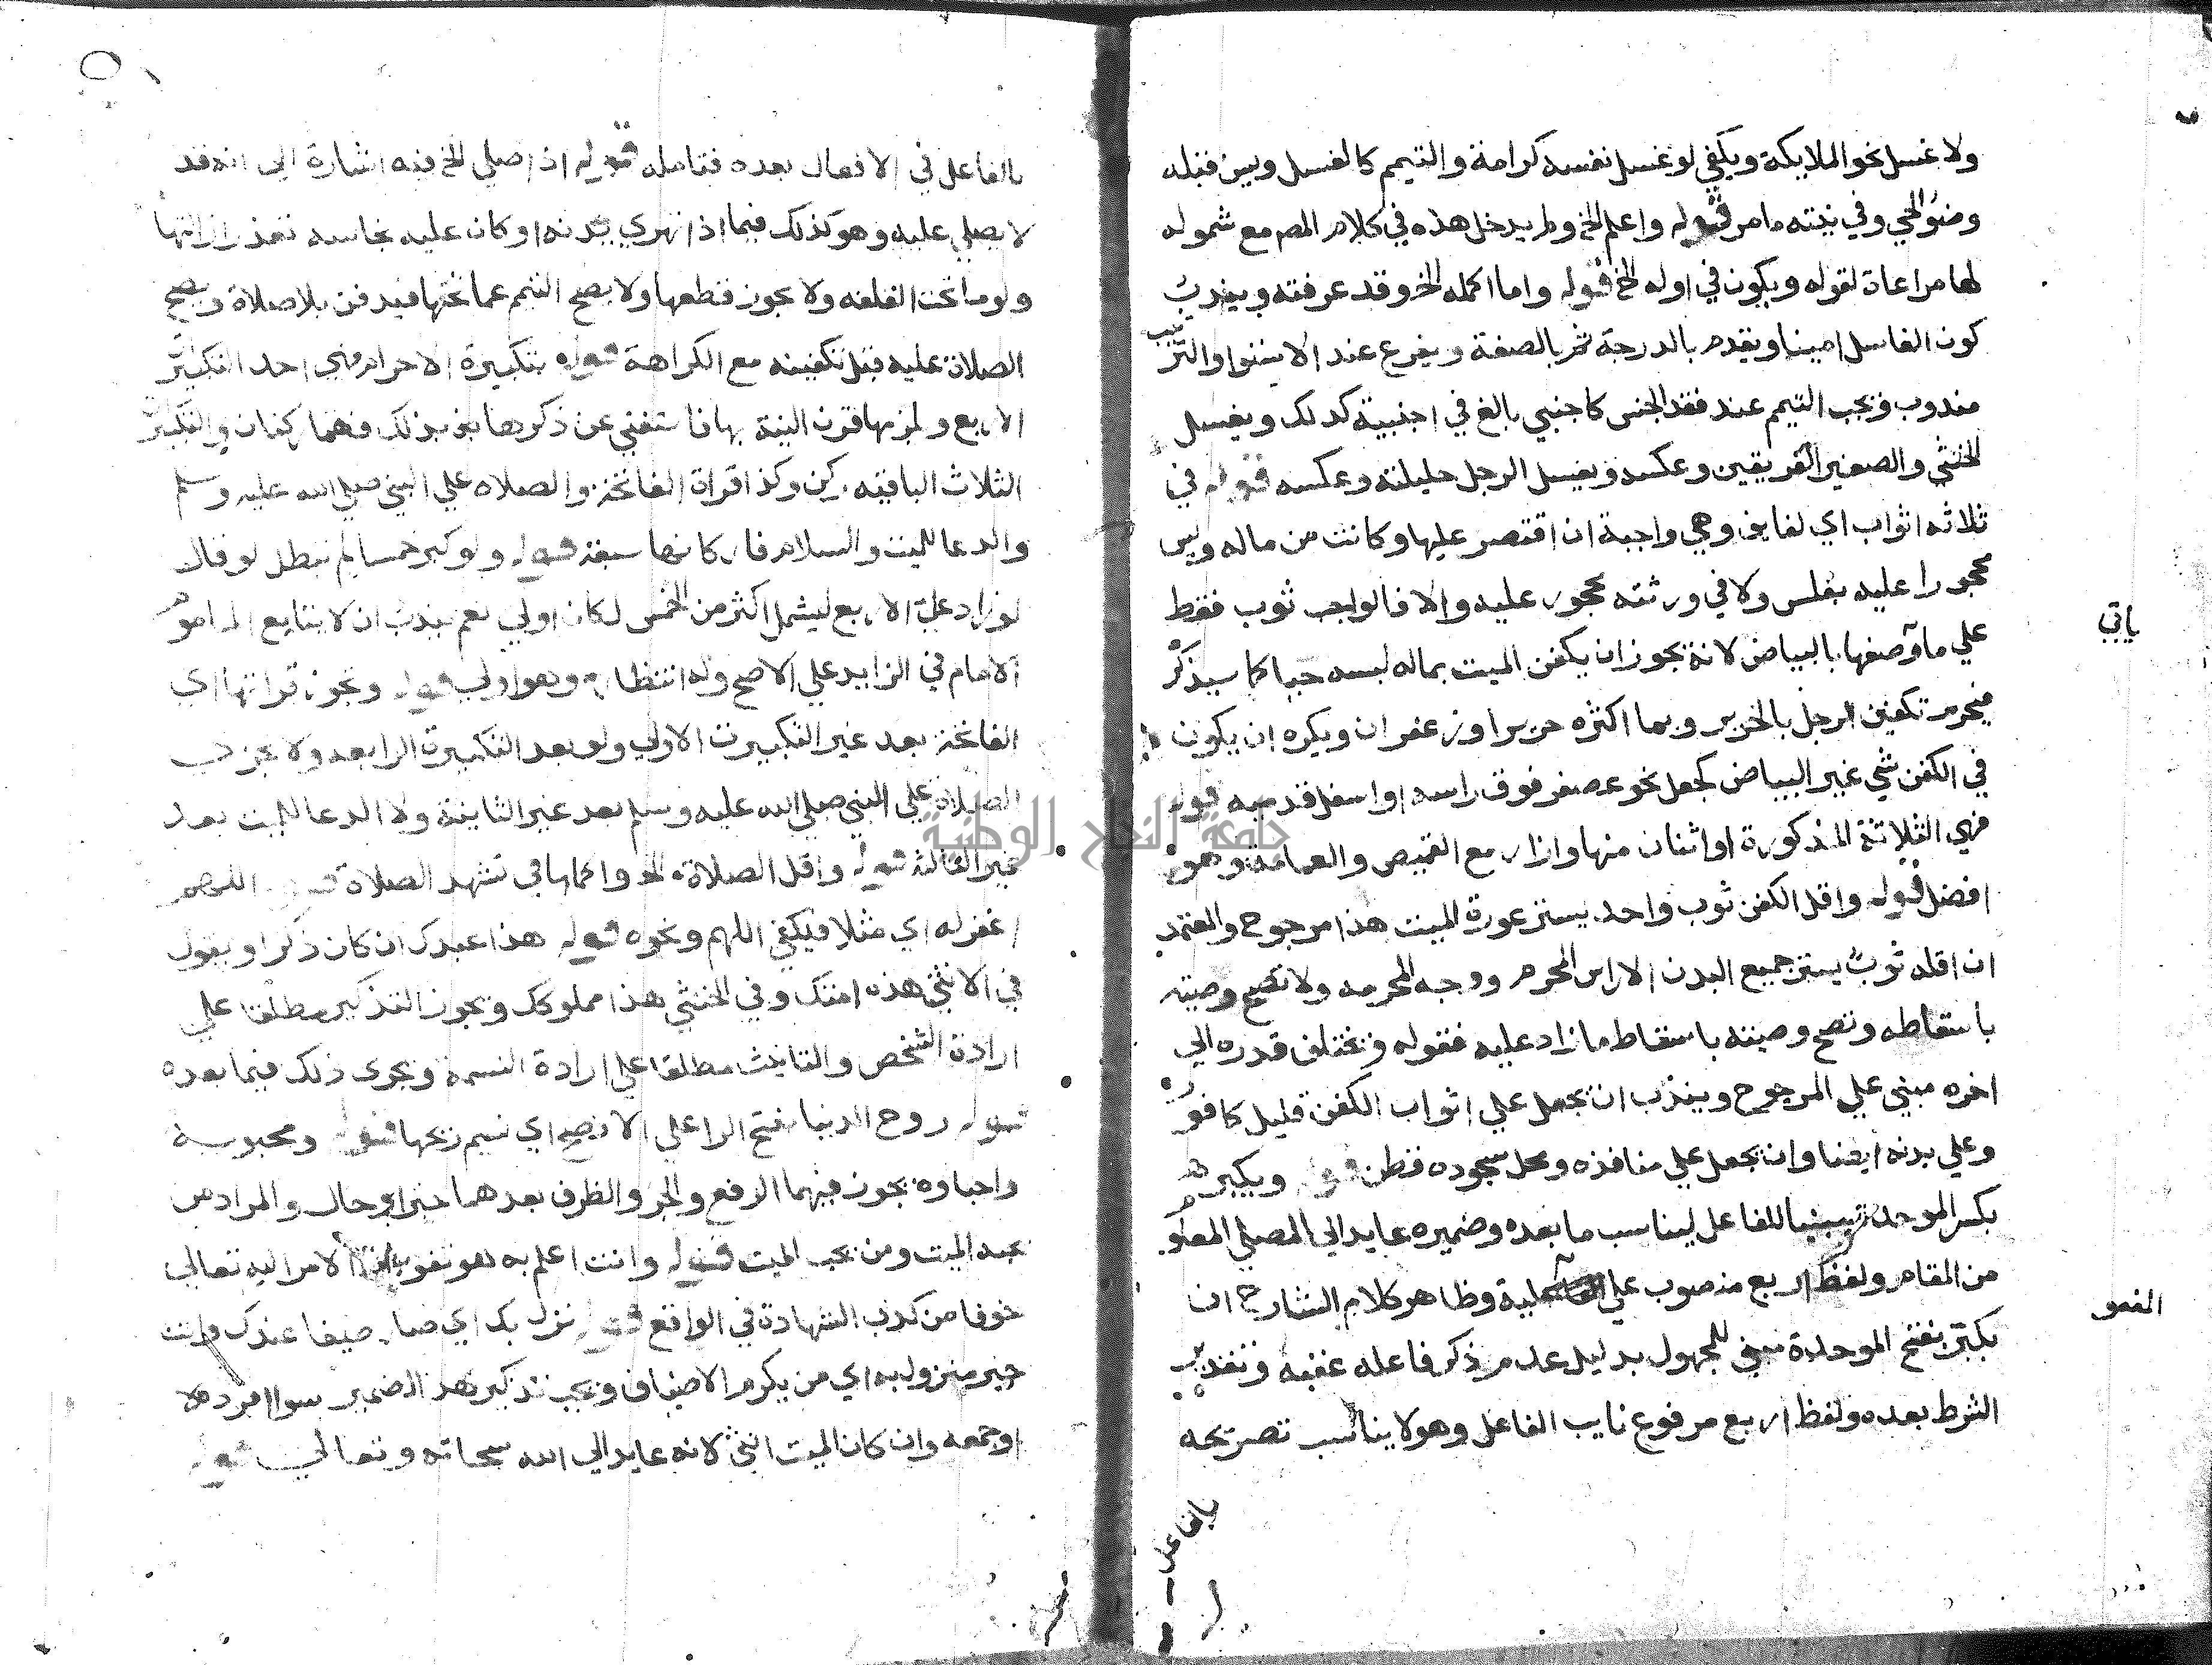 ولا غسل نحو الملايكة ويكفي لو غسل نفسه كرامة والتيمم كالغسل ويسن قبله
وضؤ الحي وفي نيته ما مر قوله واعلم الخ ولم يدخل هذه في كلام المصم مع شموله
لها مراعاة لقوله ويكون في اوله الخ قوله واما اكمله الخ وقد عرفته ويندب
كون الغاسل امينا ويقدم بالدرجة ثم بالصفة ويقرع عند الاستوا والترتيب
مندوب ويجب التيمم عند فقد الجنس كاجنبي بالغ في اجنبية كذلك ويغسل
الخنثي والصغير الفريقين وعكسه ويغسل الرجل حليلته وعكسه قوله في
ثلاثه اثواب اي لفايف وهي واجبة ان اقتصر عليها وكانت من ماله وليس
محجورا عليه بفلس ولا في ورثته محجور عليه والا فالواجب ثوب فقط
علي ما يأتي وصفها بالبياض لانه يجوز ان يكفن الميت بماله لبسه حيا كما سيذكر
فيحرم تكفين الرجل بالحرير وبما اكثره حرير او زعفران ويكره ان يكون
في الكفن شي غير البياض كجعل نحو عصفر فوق راسه او اسفل قدميه قوله
فهي الثلاثة المذكورة او اثنان منها وازار مع القميص والعمامة وهو
افضل قوله واقل الكفن ثوب واحد يستر عورة الميت هذا مرجوح والمعتمد
ان اقله ثوب يستر جميع البدن الا راس المحرم ووجه المحرمه ولا تصح وصيته
باسقاطه وتصح وصيته باسقاط ما زاد عليه فقوله ويختلف قدره الي
اخره مبني علي المرجوح ويندب ان يجعل علي اثواب الكفن قليل كافور
وعلي بدنه ايضا وان يجعل علي منافذه ومحل سجوده قطن قوله ويكبر
بكسر الموحدة مبنيا للفاعل ليناسب ما بعده وضميره عايد الي المصلي المعلوم
من المقام ولفظ اربع منصوب علي المفعولية وظاهر كلام الشارح ان
يكبر بفتح الموحدة مبني للمجهول بدليل عدم ذكر فاعله عقبه وتقدير
الشرط بعده ولفظ اربع مرفوع نايب الفاعل وهو لا يناسب تصريحه
بالفاعل
بالفاعل في الافعال بعده فتامله قوله اذ اصلي الخ فيه اشارة الي انه قد
لا يصلي عليه وهو كذلك فيما اذ تهري بدنه او كان عليه نجاسه تعذر ازالتها
ولو ما تحت القلفه ولا يجوز قطعها ولا يصح التيمم عما تحتها فيدفن بلا صلاة وتصح
الصلاة عليه قبل تكفينه مع الكراهة قوله بتكبيرة الاحرام وهي احد التكبيرات
الاربع ولزمها قرن النية بها فاستغني عن ذكرها بذلك فهما ركنان والتكبيرات
الثلاث الباقيه ركن وكذا قراة الفاتحة والصلاه علي النبي صلي الله عليه وسلم
والدعا للميت والسلام فاركانها سبعة قوله ولو كبر خمسا لم تبطل لو قال
لو زاد علي الاربع ليشمل اكثر من الخمس لكان اولي نعم يندب ان لا يتابع الماموم
الامام في الزايد علي الاصح وله انتظاره وهو اولي قوله ويجوز قراتها اي
الفاتحة بعد غير التكبيرة الاولي ولو بعد التكبيرة الرابعه ولا يجزي
الصلاة علي النبي صلي الله عليه وسلم بعد غير الثانية ولا الدعا للميت بعد
غير الثالثة قوله واقل الصلاة الخ واكملها في تشهد الصلاة قوله اللهم
اغفر له اي مثلا فيكفي اللهم ونحوه قوله هذا عبدك ان كان ذكرا ويقول
في الانثي هذه امتك وفي الخنثي هذا مملوكك ويجوز التذكير مطلقا علي
ارادة الشخص والتانيث مطلقا علي ارادة النسمة ويجري ذلك فيما بعده
قوله روح الدنيا بفتح الرا علي الافصح اي نسيم ريحها قوله ومحبوبه
واحباوه يجوز فيهما الرفع والجر والظرف بعدهما خبر او حال والمراد من
يحبه الميت ومن يحب الميت قوله وانت اعلم به هو تفويض الامر اليه تعالي
خوفا من كذب الشهادة في الواقع قوله نزل بك اي صار ضيفا عندك وانت
خير منزول به اي من يكرم الاضياف ويجب تذكير هذا الضمير سوا افرده
او جمعه وان كان الميت انثي لانه عايد الي الله سبحانه وتعالي قوله
جامعة النجاح الوطنية